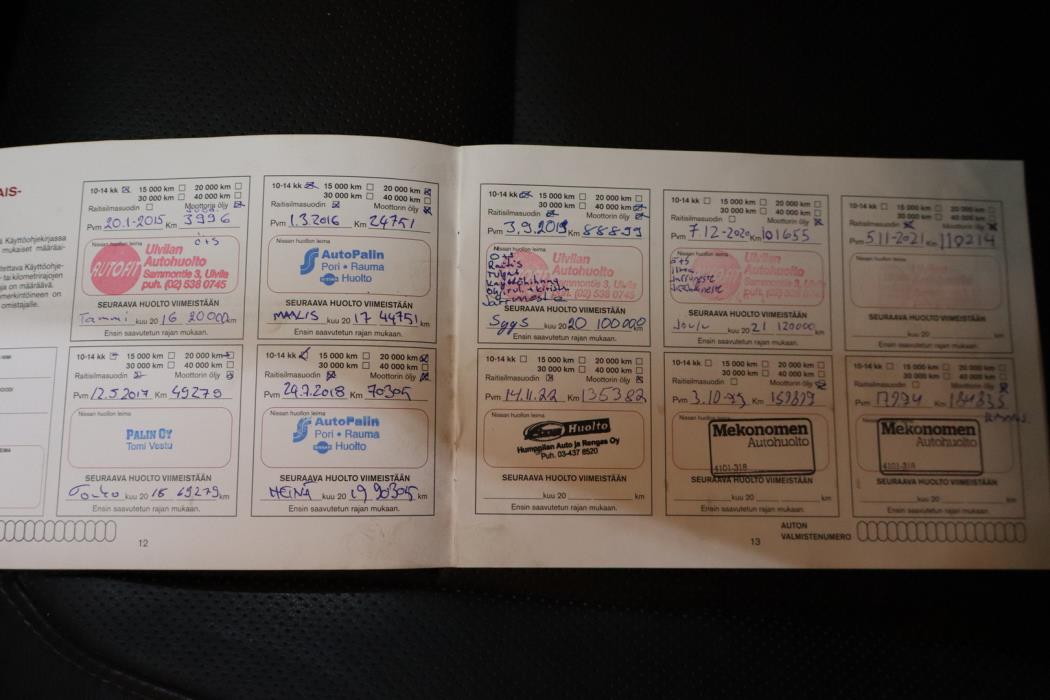 AIS-
Käyttöohjekirjassa
mukaiset määräai-
Käyttöohje-
tai kilometrirajojen
ja on määräävä.
merkintöineen on
omistajalle.
10-14 kk 15 000 km 20 000 km
30 000 km 40 000 km
Raitisilmasuodin Moottorin öljy
Pvm 20.1-2015 Km 3996
Nissan huollon leima ö+s
AUTOFIT
Ulvilan
Autohuolto
Sammontie 3, Ulvila
puh. (02) 538 0745
SEURAAVA HUOLTO VIIMEISTÄÄN
Tammi kuu 20 16 20000 km
Ensin saavutetun rajan mukaan.
10-14 kk 15 000 km 20 000 km
30 000 km 40 000 km
Raitisilmasuodin Moottorin öljy
Pvm 1.3.2016 Km 24751
Nissan huollon leima
AutoPalin
Pori • Rauma
Huolto
SEURAAVA HUOLTO VIIMEISTÄÄN
MAALIS kuu 20 17 44751 km
Ensin saavutetun rajan mukaan.
10-14 kk 15 000 km 20 000 km
30 000 km 40 000 km
Raitisilmasuodin Moottorin öljy
Pvm 12.5.2017 Km 49279
Nissan huollon leima
PALIN OY
Tomi Vestu
SEURAAVA HUOLTO VIIMEISTÄÄN
Touko kuu 20 18 69279 km
Ensin saavutetun rajan mukaan.
10-14 kk 15 000 km 20 000 km
30 000 km 40 000 km
Raitisilmasuodin Moottorin öljy
Pvm 24.7.2018 Km 70305
Nissan huollon leima
AutoPalin
Pori • Rauma
Huolto
SEURAAVA HUOLTO VIIMEISTÄÄN
HEINÄ kuu 20 19 90305 km
Ensin saavutetun rajan mukaan.
12
10-14 kk 15 000 km 20 000 km
30 000 km 40 000 km
Raitisilmasuodin Moottorin öljy
Pvm 3.9.2019 Km 88899
Nissan huollon leima
Ö+s
Raitis
Ulvilan
Autohuolto
Sammontie 3, Ulvila
puh. (02) 538 0745
SEURAAVA HUOLTO VIIMEISTÄÄN
Syys kuu 20 20 100000 km
Ensin saavutetun rajan mukaan.
10-14 kk 15 000 km 20 000 km
30 000 km 40 000 km
Raitisilmasuodin Moottorin öljy
Pvm 7-12-2020 Km 101655
Nissan huollon leima
ö+s
ilma
jarruneste
Ulvilan
Autohuolto
Sammontie 3, Ulvila
puh. (02) 538 0745
SEURAAVA HUOLTO VIIMEISTÄÄN
Joulu kuu 20 21 120000 km
Ensin saavutetun rajan mukaan.
10-14 kk 15 000 km 20 000 km
30 000 km 40 000 km
Raitisilmasuodin Moottorin öljy
Pvm 5.11-2021 Km 110214
Nissan huollon leima
SEURAAVA HUOLTO VIIMEISTÄÄN
kuu 20 km
Ensin saavutetun rajan mukaan.
10-14 kk 15 000 km 20 000 km
30 000 km 40 000 km
Raitisilmasuodin Moottorin öljy
Pvm 14.11.22 Km 135382
Nissan huollon leima
Huolto
Humppilan Auto ja Rengas Oy
Puh. 03-437 8520
SEURAAVA HUOLTO VIIMEISTÄÄN
kuu 20 km
Ensin saavutetun rajan mukaan.
10-14 kk 15 000 km 20 000 km
30 000 km 40 000 km
Raitisilmasuodin Moottorin öljy
Pvm Km
Nissan huollon leima
Mekonomen
Autohuolto
4101-318
SEURAAVA HUOLTO VIIMEISTÄÄN
kuu 20 km
Ensin saavutetun rajan mukaan.
10-14 kk 15 000 km 20 000 km
30 000 km 40 000 km
Raitisilmasuodin Moottorin öljy
Pvm Km
Nissan huollon leima
Mekonomen
Autohuolto
4101-318
SEURAAVA HUOLTO VIIMEISTÄÄN
kuu 20 km
Ensin saavutetun rajan mukaan.
13
AUTON
VALMISTENUMERO